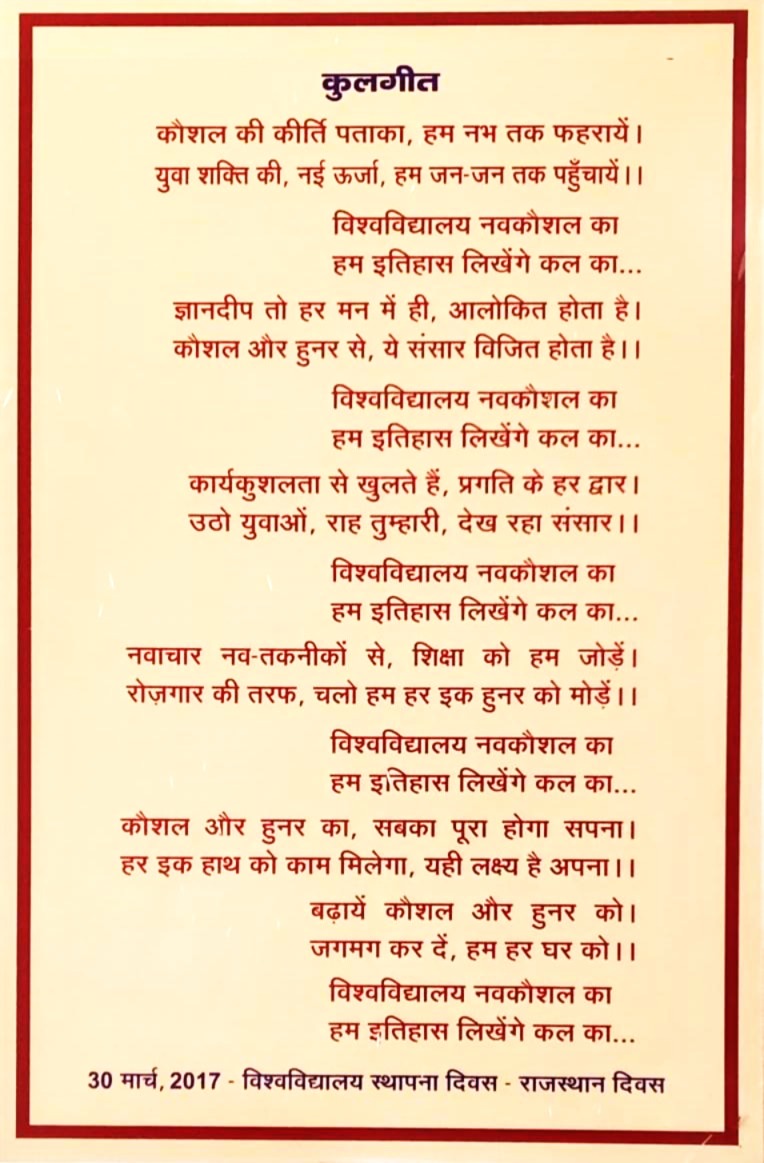 कुलगीत
कौशल की कीर्ति पताका, हम नभ तक फहरायें।
युवा शक्ति की, नई ऊर्जा, हम जन-जन तक पहुँचायें।।
विश्वविद्यालय नवकौशल का
हम इतिहास लिखेंगे कल का...
ज्ञानदीप तो हर मन में ही, आलोकित होता है।
कौशल और हुनर से, ये संसार विजित होता है।।
विश्वविद्यालय नवकौशल का
हम इतिहास लिखेंगे कल का...
कार्यकुशलता से खुलते हैं, प्रगति के हर द्वार।
उठो युवाओं, राह तुम्हारी, देख रहा संसार।।
विश्वविद्यालय नवकौशल का
हम इतिहास लिखेंगे कल का...
नवाचार नव-तकनीकों से, शिक्षा को हम जोड़ें।
रोज़गार की तरफ, चलो हम हर इक हुनर को मोड़ें।।
विश्वविद्यालय नवकौशल का
हम इतिहास लिखेंगे कल का...
कौशल और हुनर का, सबका पूरा होगा सपना।
हर इक हाथ को काम मिलेगा, यही लक्ष्य है अपना।।
बढ़ायें कौशल और हुनर को।
जगमग कर दें, हम हर घर को।।
विश्वविद्यालय नवकौशल का
हम इतिहास लिखेंगे कल का...
30 मार्च, 2017 - विश्वविद्यालय स्थापना दिवस - राजस्थान दिवस